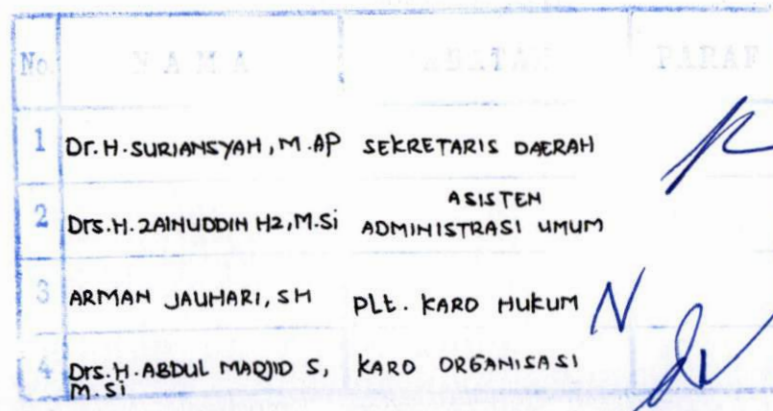 No. NAMA JABATAN PARAF
1 Dr. H. SURIANSYAH, M.AP SEKRETARIS DAERAH
2 Drs. H. ZAINUDDIN HZ, M.Si ASISTEN ADMINISTRASI UMUM
3 ARMAN JAUHARI, SH Plt. KARO HUKUM
4 Drs. H. ABDUL MADJID S, M.Si KARO ORGANISASI